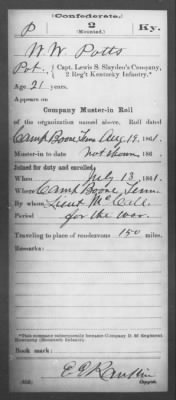 (Confederate.)
P 2 Ky.
(Mounted.)
W. W. Potts
Pvt. Capt. Lewis S. Slayden's Company,
2 Reg't Kentucky Infantry.*
Age 21 years.
Appears on
Company Muster-in Roll
of the organization named above. Roll dated
Camp Boone, Tenn Aug 19, 1861.
Muster-in to date not shown 186 .
Joined for duty and enrolled
When July 13, 1861.
Where Camp Boone, Tenn.
By whom Lieut
Period for the war.
Traveling to place of rendezvous 150 miles.
Remarks:
*This company subsequently became Company D, 2d Regiment
Kentucky (Mounted) Infantry.
Book mark:
E E Rankin
Copyist.